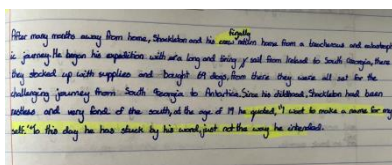 After many months away from home, Shackleton and his crew finally return home from a treacherous and
ic journey. He began his expedition with a long and tiring sail from Ireland to South Georgia, there
they stocked up with supplies and bought 69 dogs, from there they were all set for the
challenging journey from South Georgia to Antartica. Since his childhood, Shackleton had been
restless and very fond of the south, at the age of 19 he quoted, "I want to make a name for my
self." To this day he has stuck by his word, just not the way he intended.